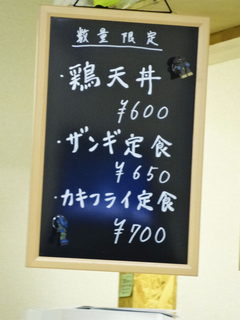 数量限定
・鶏天丼
¥600
・ザンギ定食
¥650
・カキフライ定食
¥700